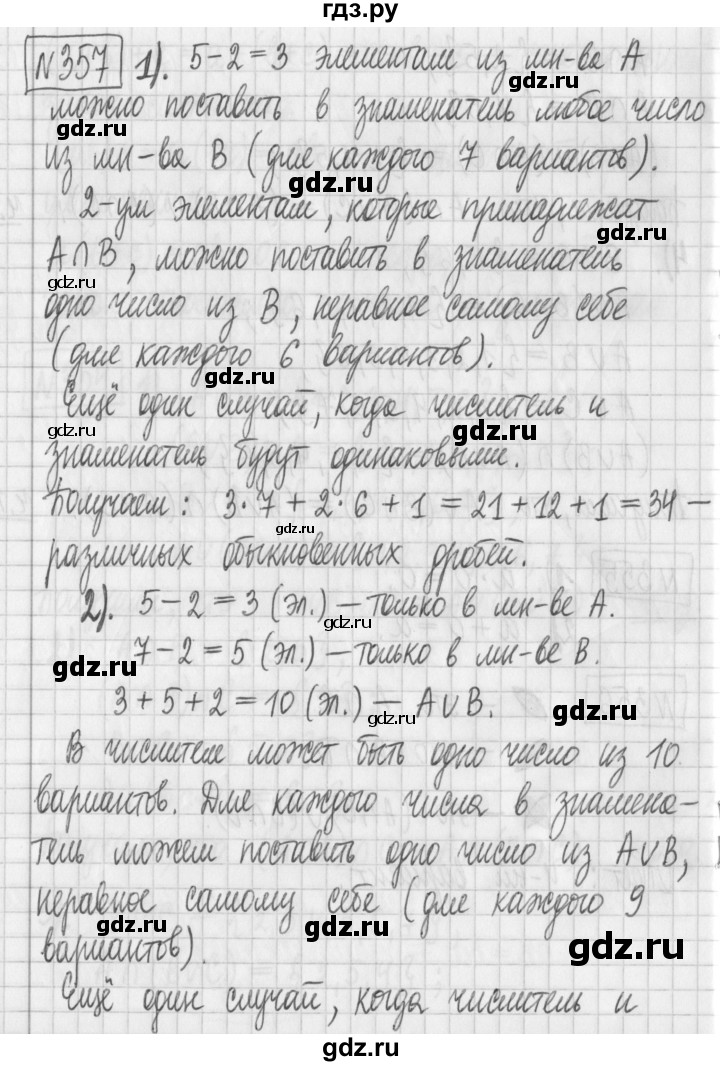 гдз.ру
№357 1). 5-2=3 элементам из мн-ва А
можно поставить в знаменатель любое число
gdz.ru
gdz.ru
из мн-ва В (для каждого 7 вариантов).
gdz.ru
2-ум элементам, которые принадлежат
gdz.ru
А∩В, можно поставить в знаменатель
gdz.ru
одно число из В, неравное самому себе
(для каждого 6 вариантов).
gdz.ru
Ещё один случай, когда числитель и
gdz.ru
gdz.ru
знаменатель будут одинаковыми.
Получаем: 3·7+2·6+1=21+12+1=34 —
gdz.ru
различных обыкновенных дробей.
2). 5-2=3 (эл.) — только в мн-ве А.
gdz.ru
7-2=5 (эл.) — только в мн-ве В.
gdz.ru
3+5+2=10 (эл.) — А∪В.
gdz.ru
gdz.ru
В числителе может быть одно число из 10
вариантов. Для каждого числа в знамена-
тель можем поставить одно число из А∪В,
неравное самому себе (для каждого 9
gdz.ru
gdz.ru
вариантов).
gdz.ru
Ещё один случай, когда числитель и
gdz.ru